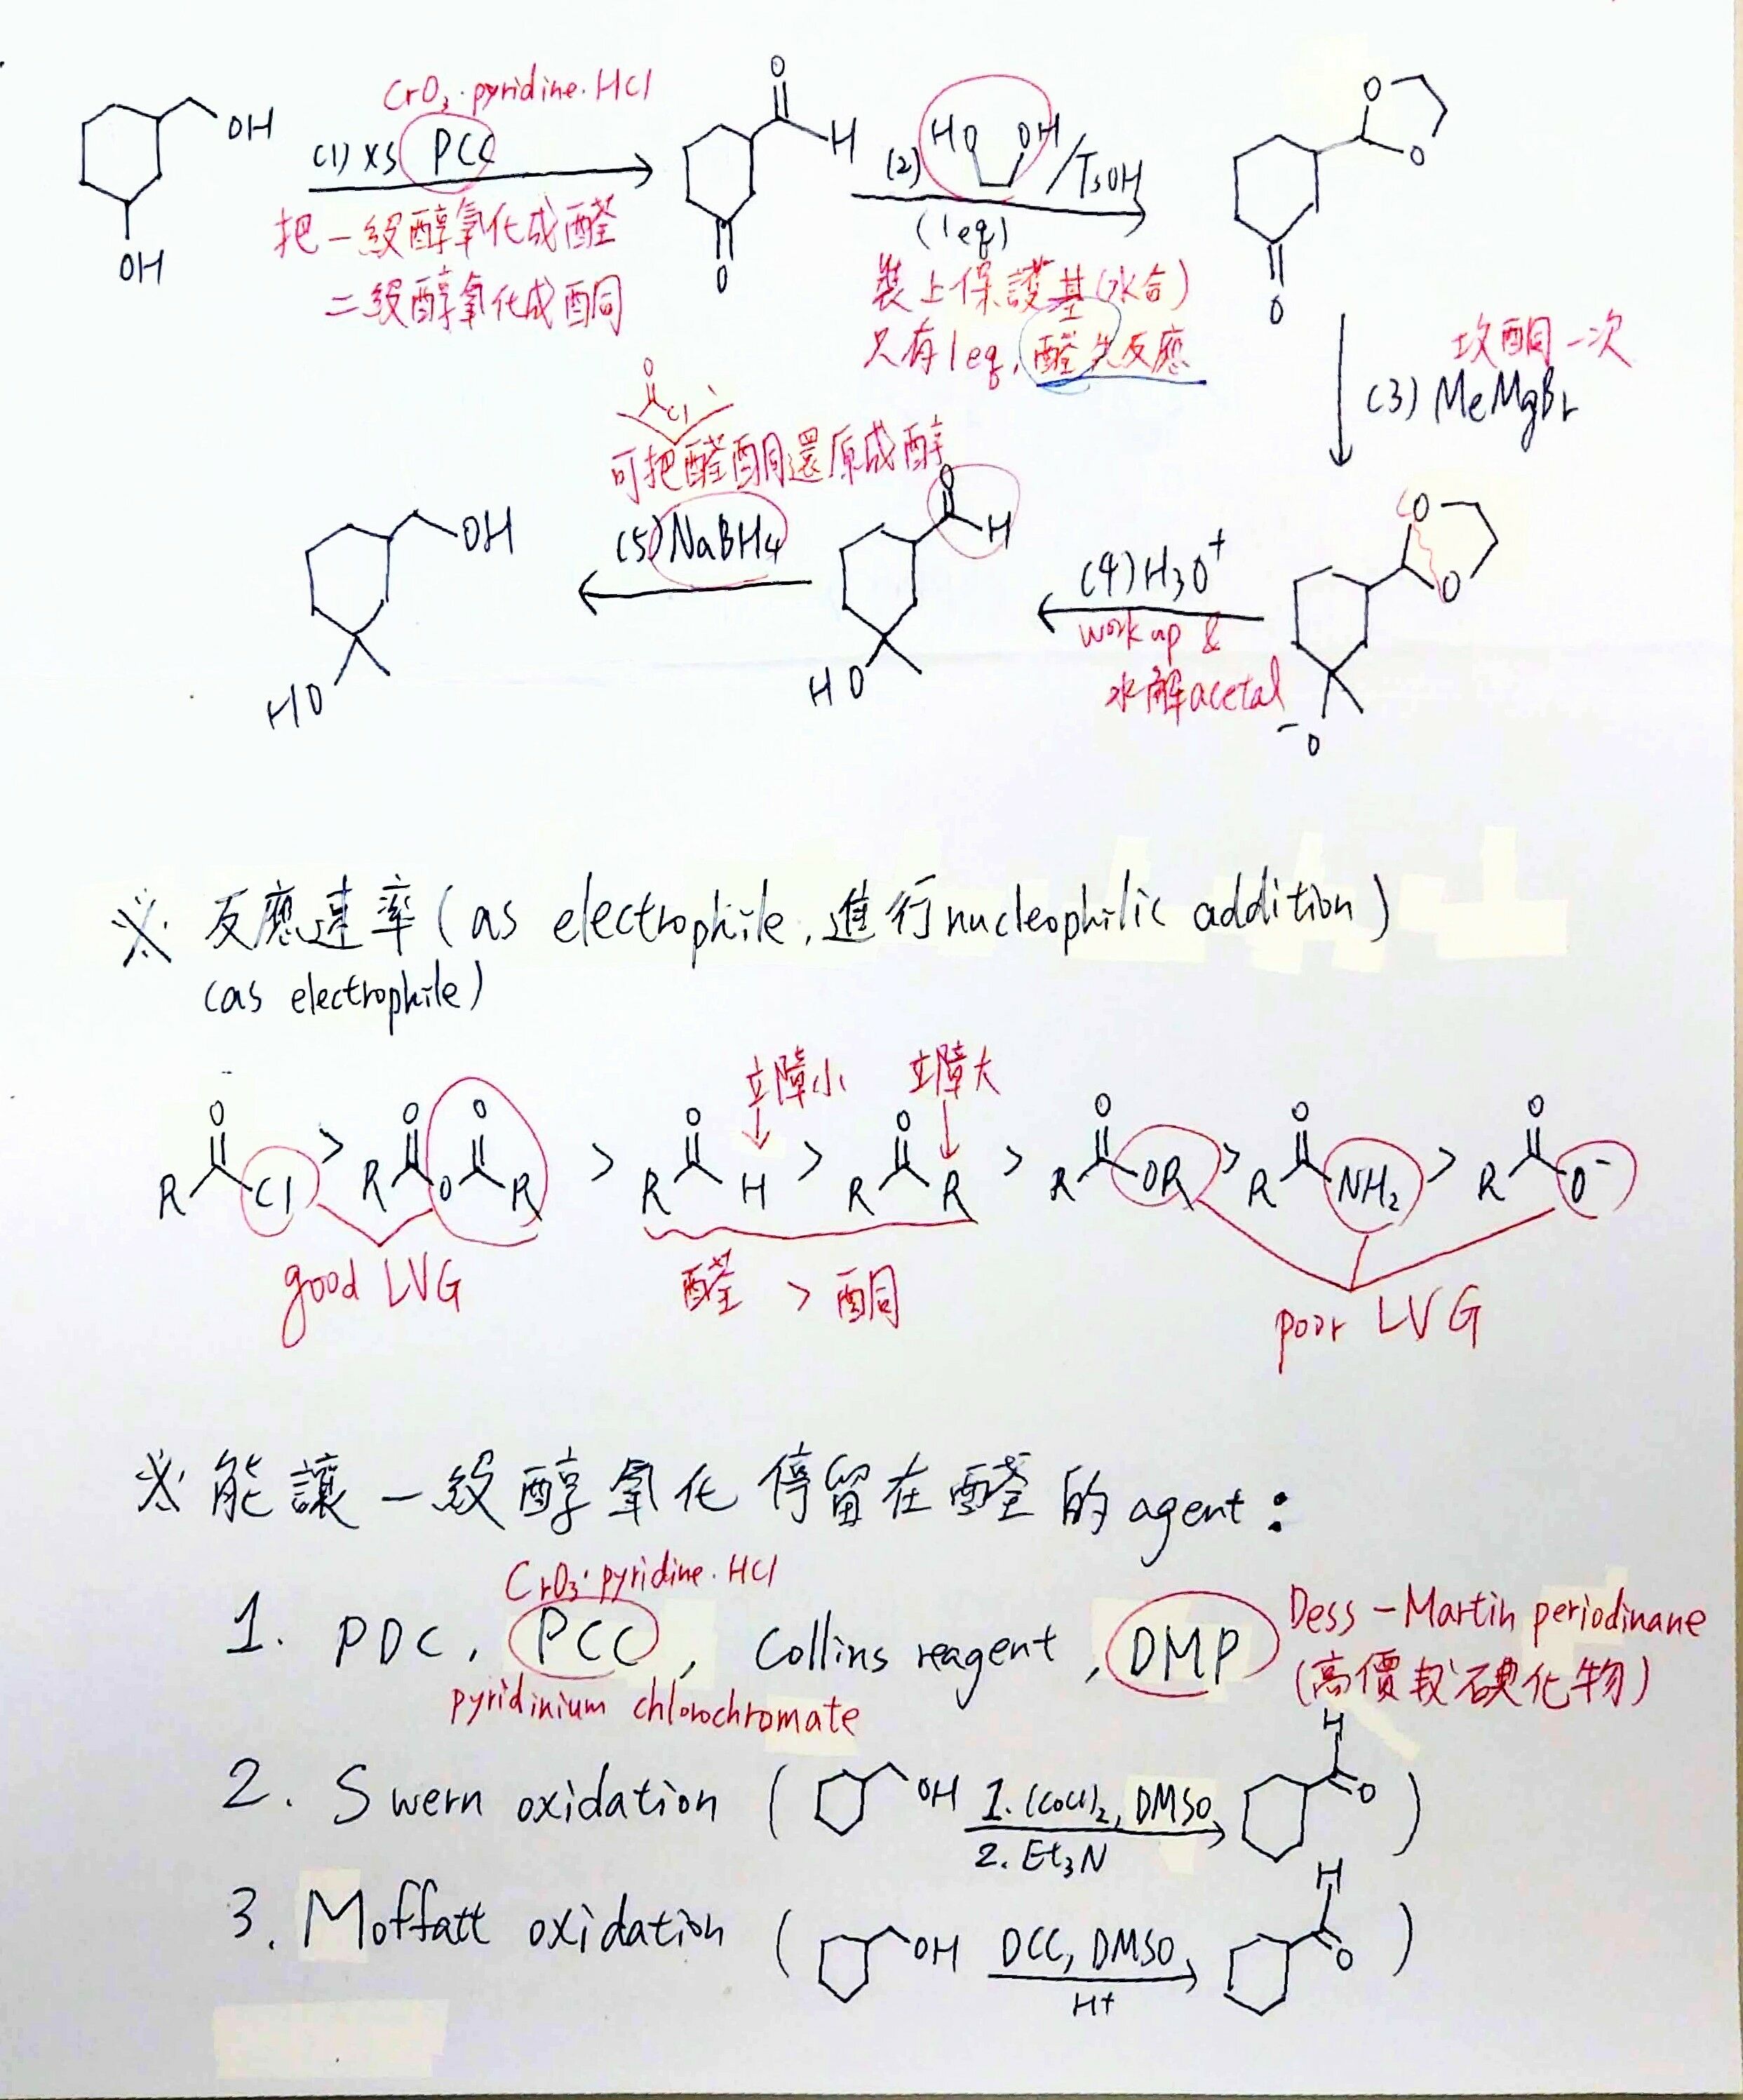 CrO3·pyridine·HCl
OH
OH
(1) xs PCC
把一級醇氧化成醛
二級醇氧化成酮
O
H
O
(2) HO OH /TsOH
(1eq)
裝上保護基(水合)
只有1eq, 醛先反應
O
O
O
攻酮一次
(3) MeMgBr
O
O
⁻O
(4) H3O+
work up &
水解acetal
O
H
HO
O
Cl
可把醛酮還原成醇
(5) NaBH4
OH
HO
※ 反應速率(as electrophile, 進行nucleophilic addition)
(as electrophile)
立障小 立障大
O O O O O O O O
R Cl > R O R > R H > R R > R OR > R NH2 > R O⁻
good LVG
醛 > 酮
poor LVG
※ 能讓一級醇氧化停留在醛的agent:
CrO3·pyridine·HCl
1. PDC, PCC, Collins reagent, DMP
Dess-Martin periodinane
pyridinium chlorochromate
2. Swern oxidation ( OH 1. (COCl)2, DMSO H O )
2. Et3N
3. Moffatt oxidation ( OH DCC, DMSO H O )
H+